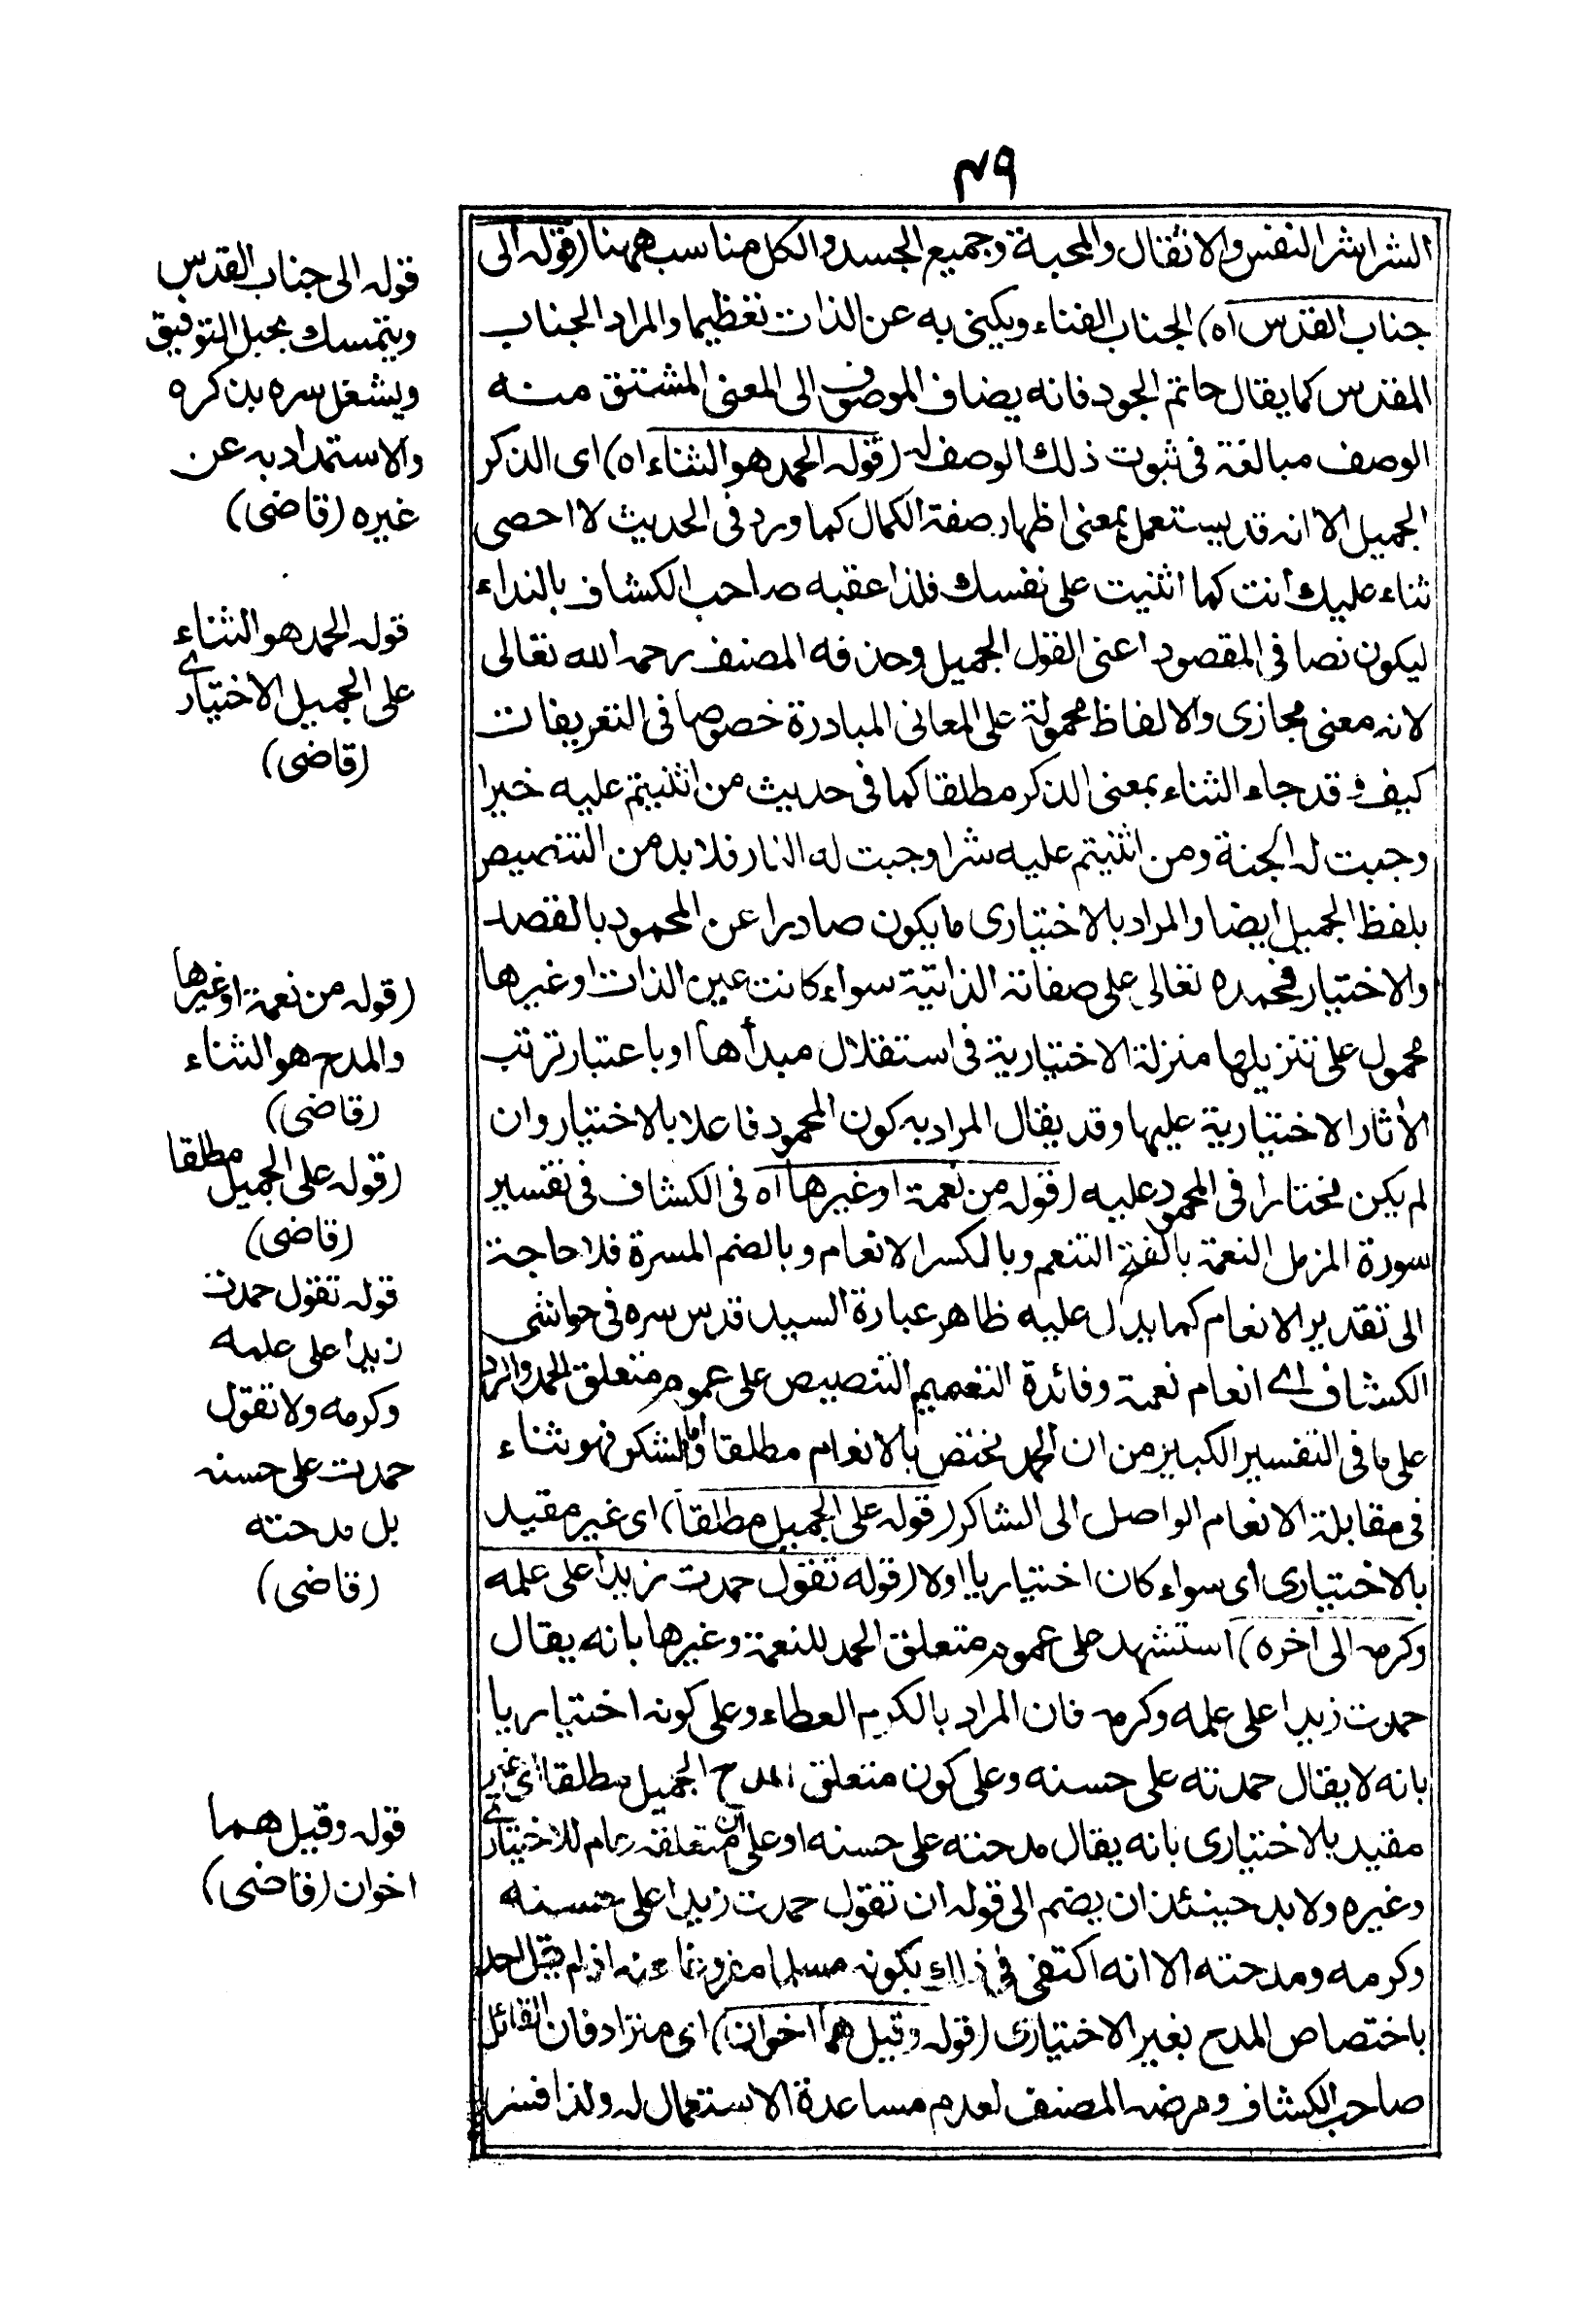 ٤٩
الشراشر النفس والاثقال والمحبة وجميع الجسد والكل مناسب ههنا (قوله الى
جناب القدس اه) الجناب الفناء ويكنى به عن الذات تعظيما والمراد الجناب
المقدس كما يقال حاتم الجود فانه يضاف الموصوف الى المعنى المشتق منه
الوصف مبالغة فى ثبوت ذلك الوصف له (قوله الحمد هو الثناء اه) اى الذكر
الجميل الا انه قد يستعمل بمعنى اظهار صفة الكمال كما ورد فى الحديث لا احصى
ثناء عليك انت كما اثنيت على نفسك فلذا عقبه صاحب الكشاف بالنداء
ليكون نصا فى المقصود اعنى القول الجميل وحذفه المصنف رحمه الله تعالى
لانه معنى مجازى والالفاظ محمولة على المعانى المبادرة خصوصا فى التعريفات
كيف وقد جاء الثناء بمعنى الذكر مطلقا كما فى حديث من اثنيتم عليه خيرا
وجبت له الجنة ومن اثنيتم عليه شرا وجبت له النار فلا بد من التنصيص
بلفظ الجميل ايضا والمراد بالاختيارى ما يكون صادرا عن المحمود بالقصد
والاختيار فحمده تعالى على صفاته الذاتية سواء كانت عين الذات او غيرها
محمول على تنزيلها منزلة الاختيارية فى استقلال مبدأها او باعتبار ترتب
الأثار الاختيارية عليها وقد يقال المراد به كون المحمود فاعلا بالاختيار وان
لم يكن مختارا فى المحمود عليه (قوله من نعمة او غيرها اه فى الكشاف فى تفسير
سورة المزمل النعمة بالفتح التنعم وبالكسر الانعام وبالضم المسرة فلا حاجة
الى تقدير الانعام كما يدل عليه ظاهر عبارة السيد قدس سره فى حواشى
الكشاف اے انعام نعمة وفائدة التعميم التنصيص على عموم متعلق الحمد والرد
على ما فى التفسير الكبير من ان الحمد يختص بالانعام مطلقا واما الشكر فهو ثناء
فى مقابلة الانعام الواصل الى الشاكر (قوله على الجميل مطلقا) اى غير مقيد
بالاختيارى اى سواء كان اختياريا اولا (قوله تقول حمدت زيدا على علمه
وكرمه الى اخره) استشهد على عموم متعلق الحمد للنعمة وغيرها بانه يقال
حمدت زيدا على علمه وكرمه فان المراد بالكرم العطاء وعلى كونه اختياريا
بانه لا يقال حمدته على حسنه وعلى كون متعلق المدح الجميل مطلقا اى غير
مقيد بالاختيارى بانه يقال مدحته على حسنه او على ان متعلقه عام للاختيارے
وغيره ولا بد حينئذ ان يضم الى قوله ان تقول حمدت زيدا على حسنه
وكرمه ومدحته الا انه اكتفى فى ذلك بكونه مسلما مفروغا عنه اذ لم يقل احد
باختصاص المدح بغير الاختيارى (قوله وقيل هما اخوان) اى مترادفان القائل
صاحب الكشاف ومرضه المصنف لعدم مساعدة الاستعمال له ولذا فسر
قوله الى جناب القدس
ويتمسك بحبل التوفيق
ويشغل سره بذكره
والاستمداد به عن
غيره (قاضى)
قوله الحمد هو الثناء
على الجميل الاختيارے
(قاضى)
(قوله من نعمة او غيرها
والمدح هو الثناء
(قاضى)
(قوله على الجميل مطلقا
(قاضى)
قوله تقول حمدت
زيدا على علمه
وكرمه ولا تقول
حمدت على حسنه
بل مدحته
(قاضى)
قوله وقيل هما
اخوان (قاضى)